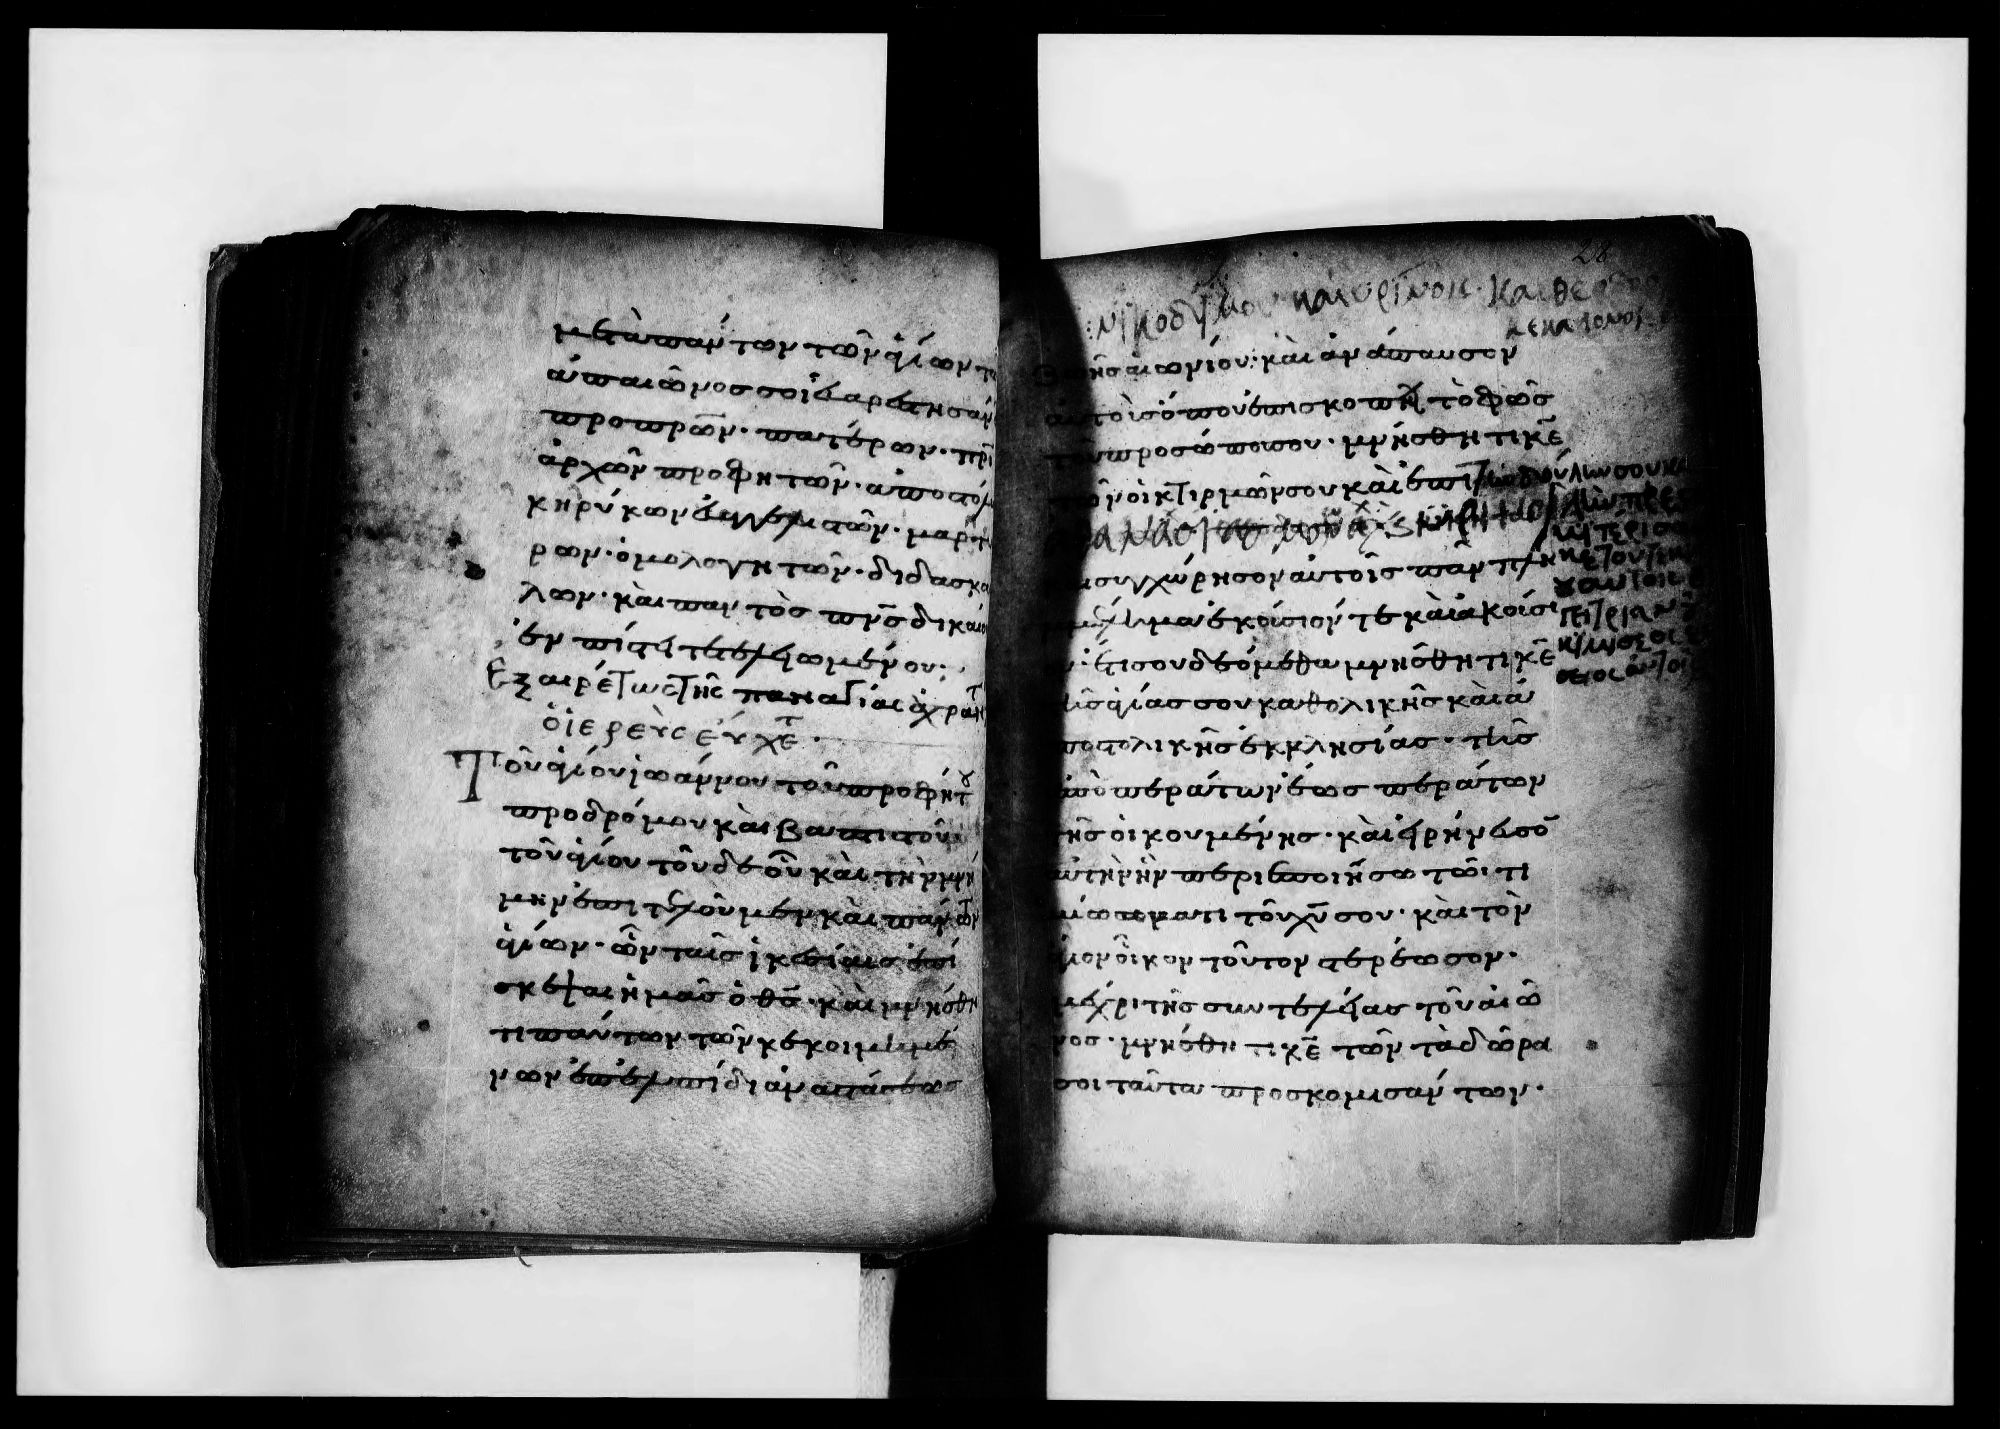 μετὰ πάντων τῶν ἁγίων τῶ
ἀπαιῶνος σοι εὐαρεστησάν
προπρῶν· πατέρων· πρι
ἀρχῶν προφητῶν· ἀποστό
κηρύκων εὐαγγελιστῶν· μαρτύ
ρων· ὁμολογητῶν· διδασκά
λων· καὶ παντὸς πνς δικαίου
ἐν πίστει τετελειωμένου·
Εξαιρέτως τῆς παναγίας ἀχράντ
ὁ ἱερεὺς εὔχετ·
Τοῦ ἁγίου ἰωάννου τοῦ προφήτου
προδρόμου καὶ βαπτιστοῦ
τοῦ ἁγίου τοῦδε οὗ καὶ τὴν μνή
μην ἐπιτελοῦμεν καὶ πάντων
ἁγίων· ὧν ταῖς ἱκεσίαις ἐπί
σκεψαι ἡμᾶς ὁ θς· καὶ μνήσθη
τι πάντων τῶν κεκοιμημέ
νων ἐπ' ἐλπίδι ἀναστάσεως
νικοδήμου και θεο
ζωῆς αἰωνίου· καὶ ἀνάπαυσον
αὐτοὺς ὅπου ἐπισκοπεῖ τὸ φῶς
τοῦ προσώπου σου· μνήσθητι κε
τῶν οἰκτιρμῶν σου καὶ ἐπὶ
καὶ συγχώρησον αὐτοῖς πᾶν πλη
μμέλημα ἑκούσιόν τε καὶ ἀκούσι
ον· ἔτι σου δεόμεθα μνήσθητι κε
τῆς ἁγίας σου καθολικῆς καὶ ἀ
ποστολικῆς ἐκκλησίας· τῆς
ἀπὸ περάτων ἕως περάτων
τῆς οἰκουμένης· καὶ εἰρήνευσο
αὐτὴν ἣν περιεποιήσω τῶι τι
μίω αἵματι τοῦ χυ σου· καὶ τὸν
ἅγιον οἶκον τοῦτον στερέωσον·
μέχρι τῆς συντελείας τοῦ αἰῶ
νος· μνήσθητι κε τῶν τὰ δῶρα
σοι ταῦτα προσκομισάντων·